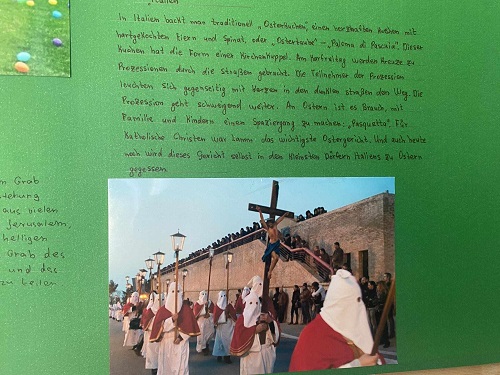 Italien
In Italien backt man traditionell „Osterkuchen", einen herzhaften Kuchen mit
hartgekochten Eiern und Spinat, oder „Ostertaube" – „Paloma di Pasquia". Dieser
Kuchen hat die Form einer Kirchenkuppel. Am Karfreitag werden Kreuze zu
Prozessionen durch die Straßen gebracht. Die Teilnehmer der Prozession
leuchten sich gegenseitig mit Kerzen in den dunklen Straßen den Weg. Die
Prozession geht schweigend weiter. An Ostern ist es Brauch, mit
Familie und Kindern einen Spaziergang zu machen: „Pasquetta". Für
Katholische Christen war Lamm das wichtigste Ostergericht. Und auch heute
noch wird dieses Gericht selbst in den kleinsten Dörfern Italiens zu Ostern
gegessen
Grab
aus vielen
Jerusalem
heiligen
Grab des
und das
zu teilen